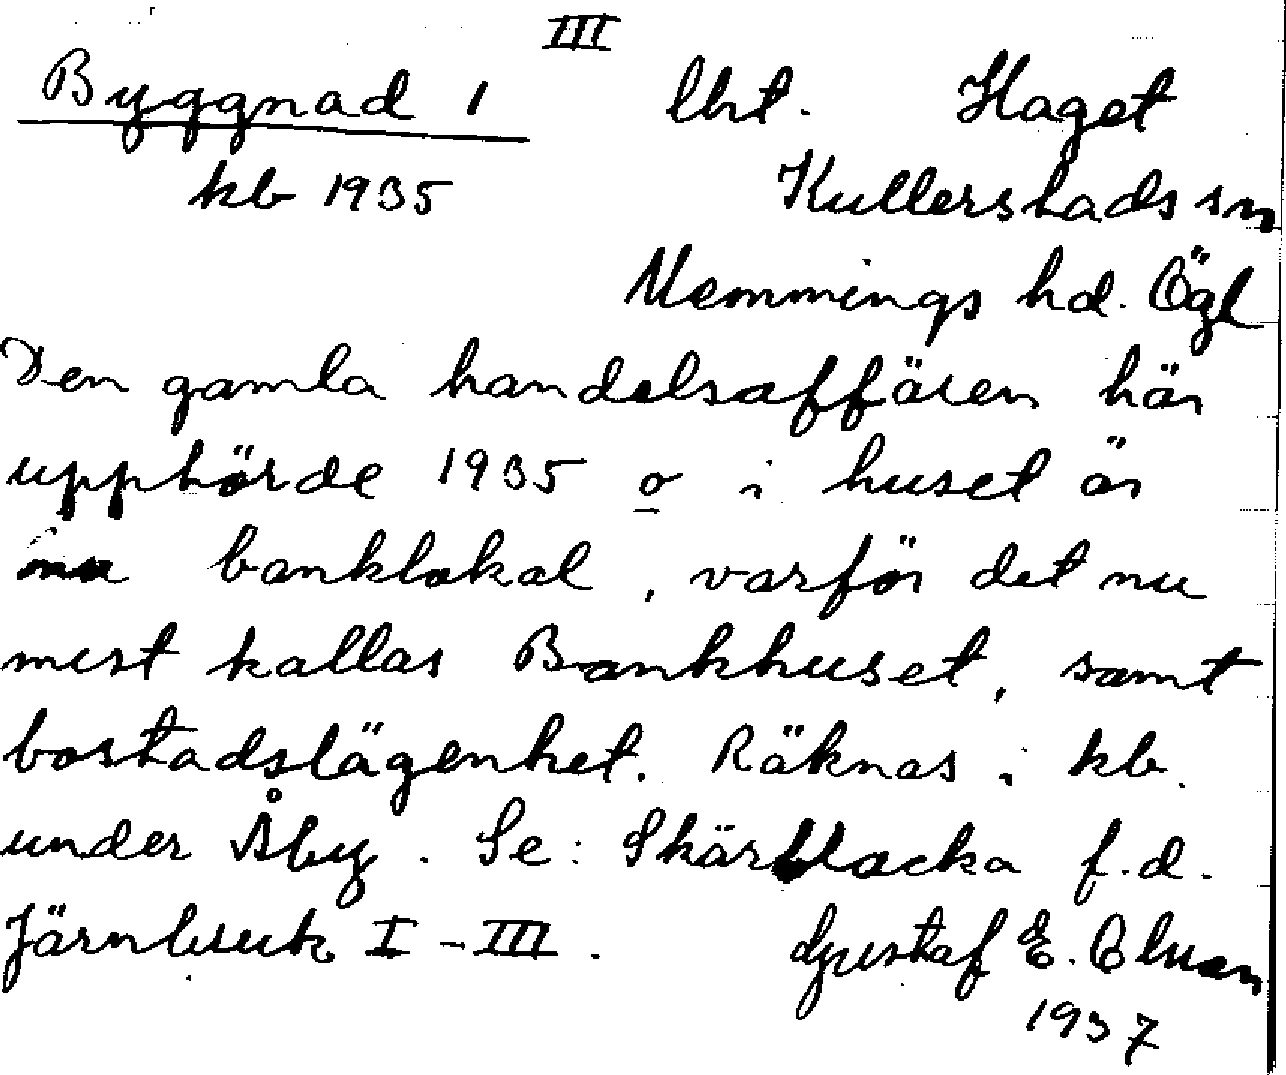 III
Byggnad 1 lht. Haget
kb 1935 Kullerstads sn
Memmings hd. Ögl
Den gamla handelsaffären här
upphörde 1935 o i huset är
nu banklokal, varför det nu
mest kallas Bankhuset, samt
bostadslägenhet. Räknas i kb.
under Åby. Se: Skärblacka f.d.
Järnbruk I-III.
Gustaf E. Olsson
1937